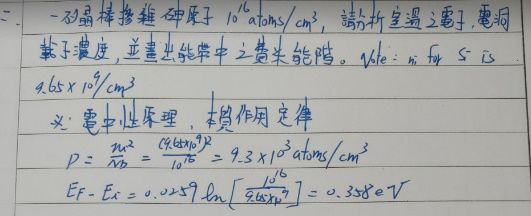 二、一矽晶棒摻雜砷原子 10^16 atoms/cm³, 請分析室溫之電子,電洞
載子濃度,並畫出能帶中之費米能階。Note: ni for Si is
9.65×10^9/cm³
※: 電中性原理、本質作用定律
P = ni²/ND = (9.65×10^9)²/10^16 = 9.3×10³ atoms/cm³
EF - Ei = 0.0259 ln [10^16/9.65×10^9] = 0.358 eV